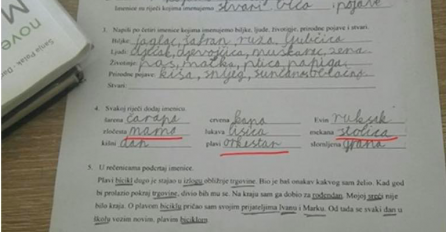 Imenice su riječi kojima imenujemo stvari bića i pojave
3. Napiši po četiri imenice kojima imenujemo biljke, ljude, životinje, prirodne pojave i stvari.
Biljke: jaglac, šafran, ruža, ljubičica
Ljudi: dječak, djevojčica, muškarac, žena
Životinje: pas, mačka, ptica, papiga
Prirodne pojave: kiša, snijeg, sunčano, oblačno
Stvari:
4. Svakoj riječi dodaj imenicu.
šarena čarapa crvena kapa Evin rukosak
zločesta mama lukava lisica mekana stolica
kišni dan plavi orkestar slomljena grana
5. U rečenicama podcrtaj imenice.
Plavi bicikl dugo je stajao u izlogu obližnje trgovine. Bio je baš onakav kakvog sam želio. Kad god
bi prolazio pokraj trgovine, divio bih mu se. Na kraju sam ga dobio za rođendan. Mojoj sreći nije
bilo kraja. O plavom biciklu pričao sam svojim prijateljima Ivanu i Marku. Od tada se svaki dan u
školu vozim novim, plavim biciklom.